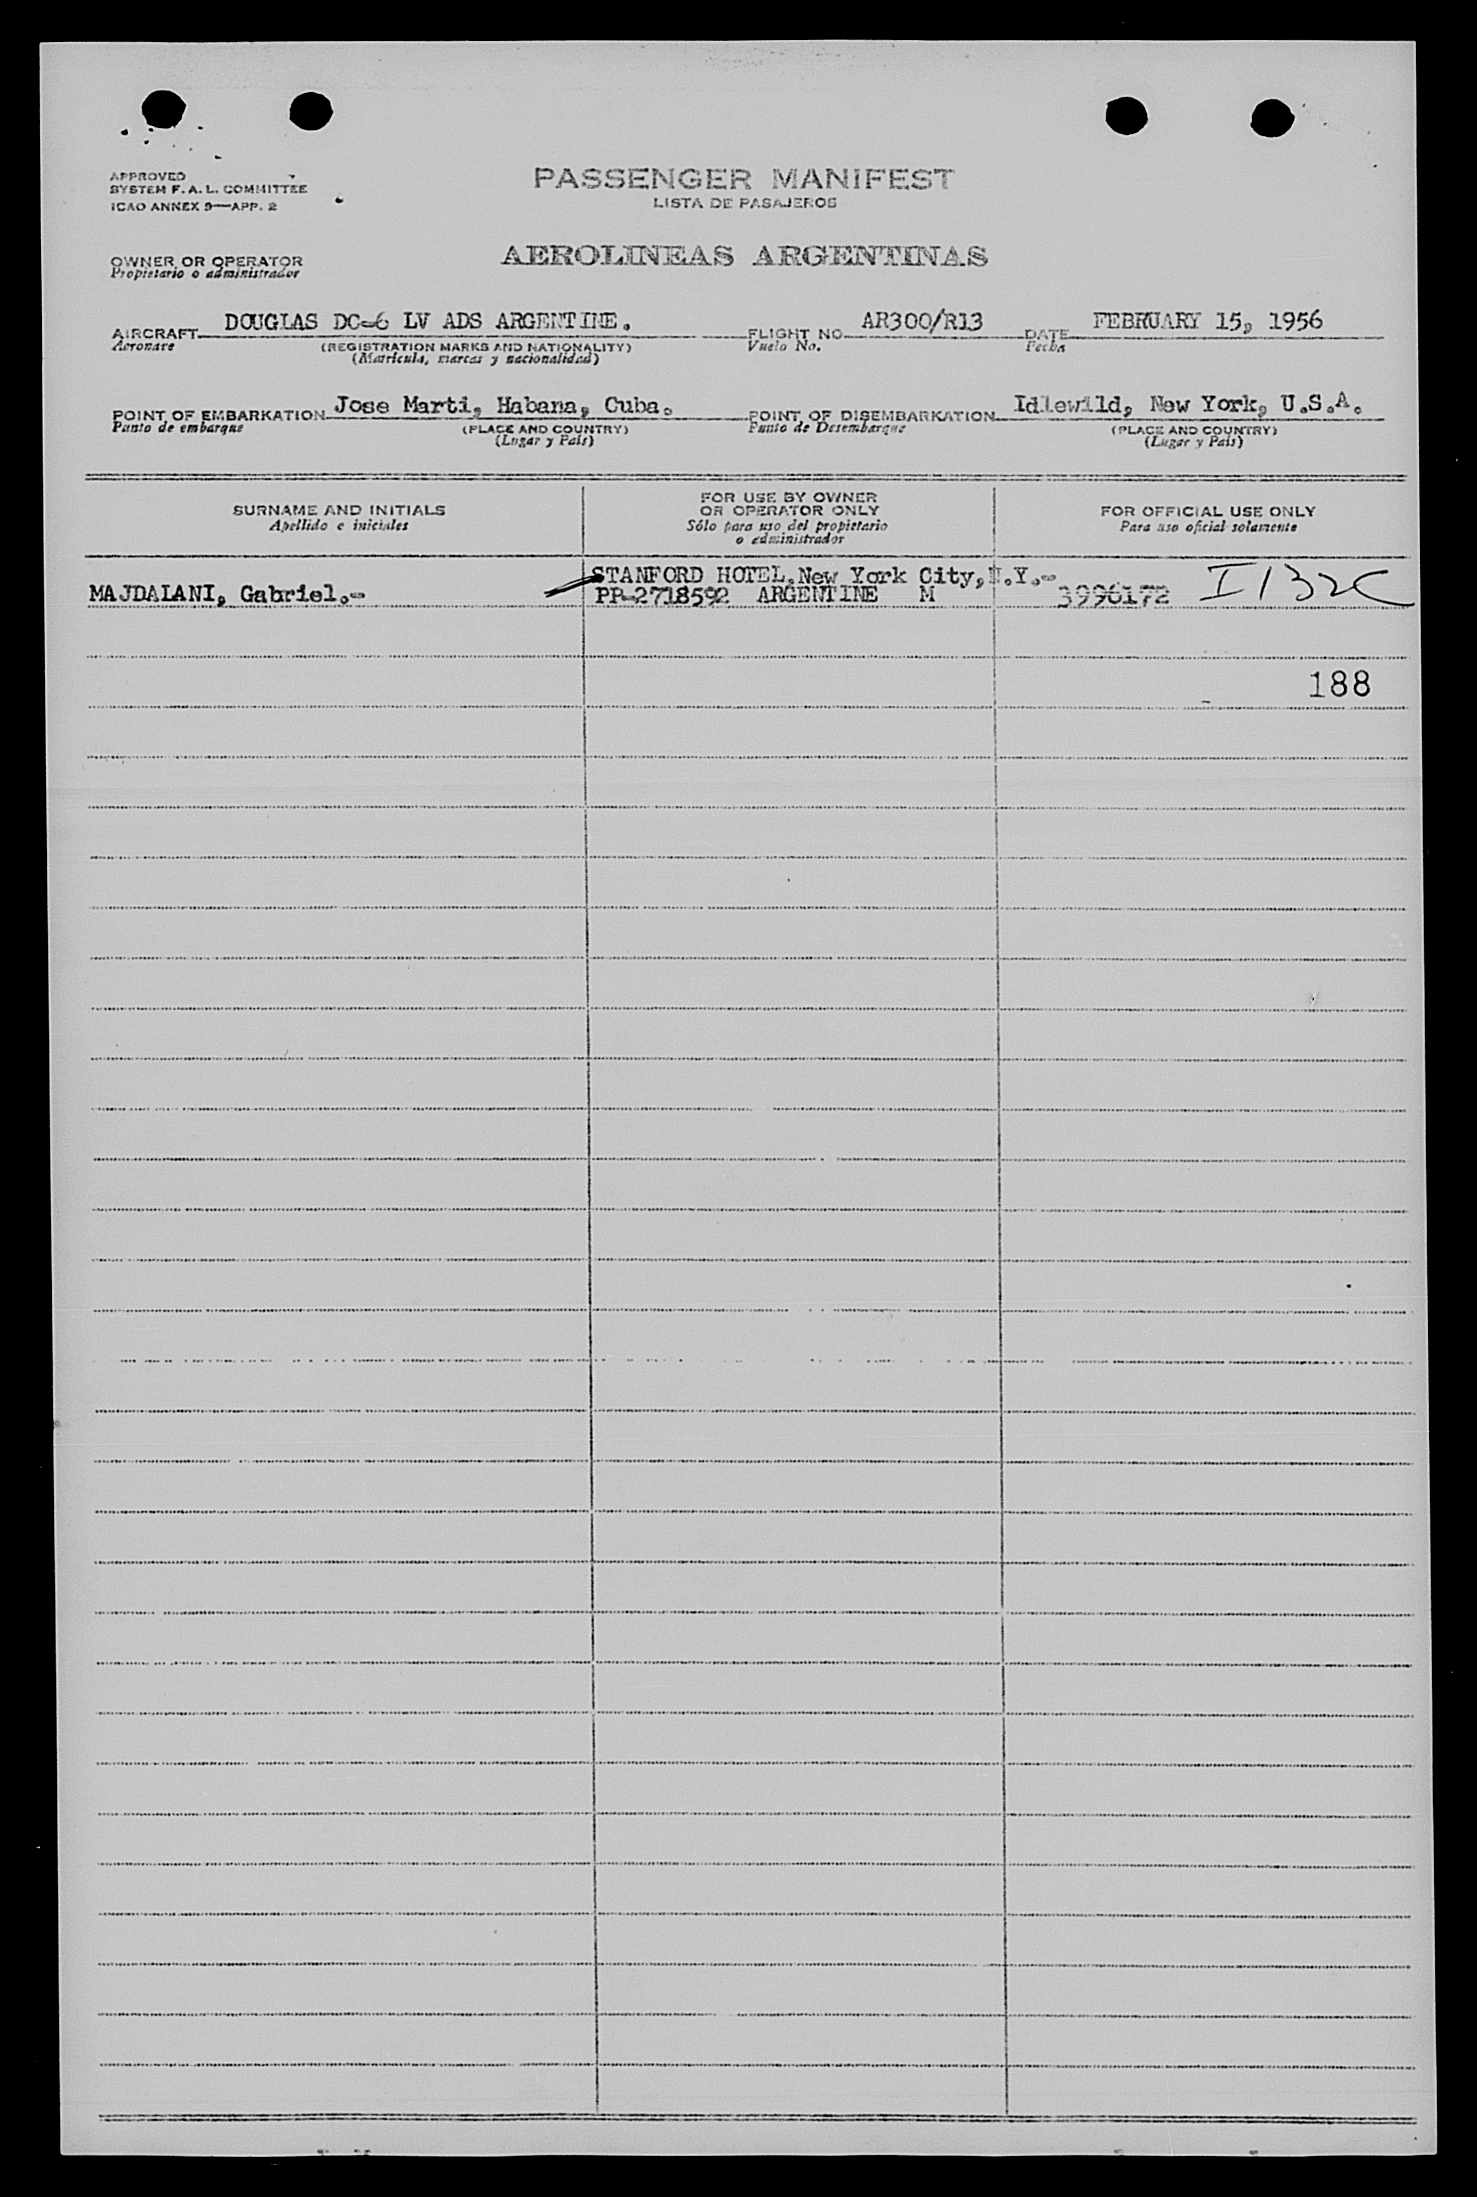 APPROVED
SYSTEM F. A. L. COMMITTEE
ICAO ANNEX 9—APP. 2
PASSENGER MANIFEST
LISTA DE PASAJEROS
OWNER OR OPERATOR
Propietario o administrador
AEROLINEAS ARGENTINAS
AIRCRAFT DOUGLAS DC-6 LV ADS ARGENTINE. FLIGHT NO. AR300/R13 DATE FEBRUARY 15, 1956
Aeronave (REGISTRATION MARKS AND NATIONALITY) Vuelo No. Fecha
(Matrícula, marcas y nacionalidad)
POINT OF EMBARKATION Jose Marti, Habana, Cuba. POINT OF DISEMBARKATION Idlewild, New York, U.S.A.
Punto de embarque (PLACE AND COUNTRY) Punto de Desembarque (PLACE AND COUNTRY)
(Lugar y País) (Lugar y País)
SURNAME AND INITIALS
Apellido e iniciales
FOR USE BY OWNER
OR OPERATOR ONLY
Sólo para uso del propietario
o administrador
FOR OFFICIAL USE ONLY
Para uso oficial solamente
STANFORD HOTEL, New York City, N.Y.-
MAJDALANI, Gabriel.- PP-2718592 ARGENTINE M 3996172 I132C
188